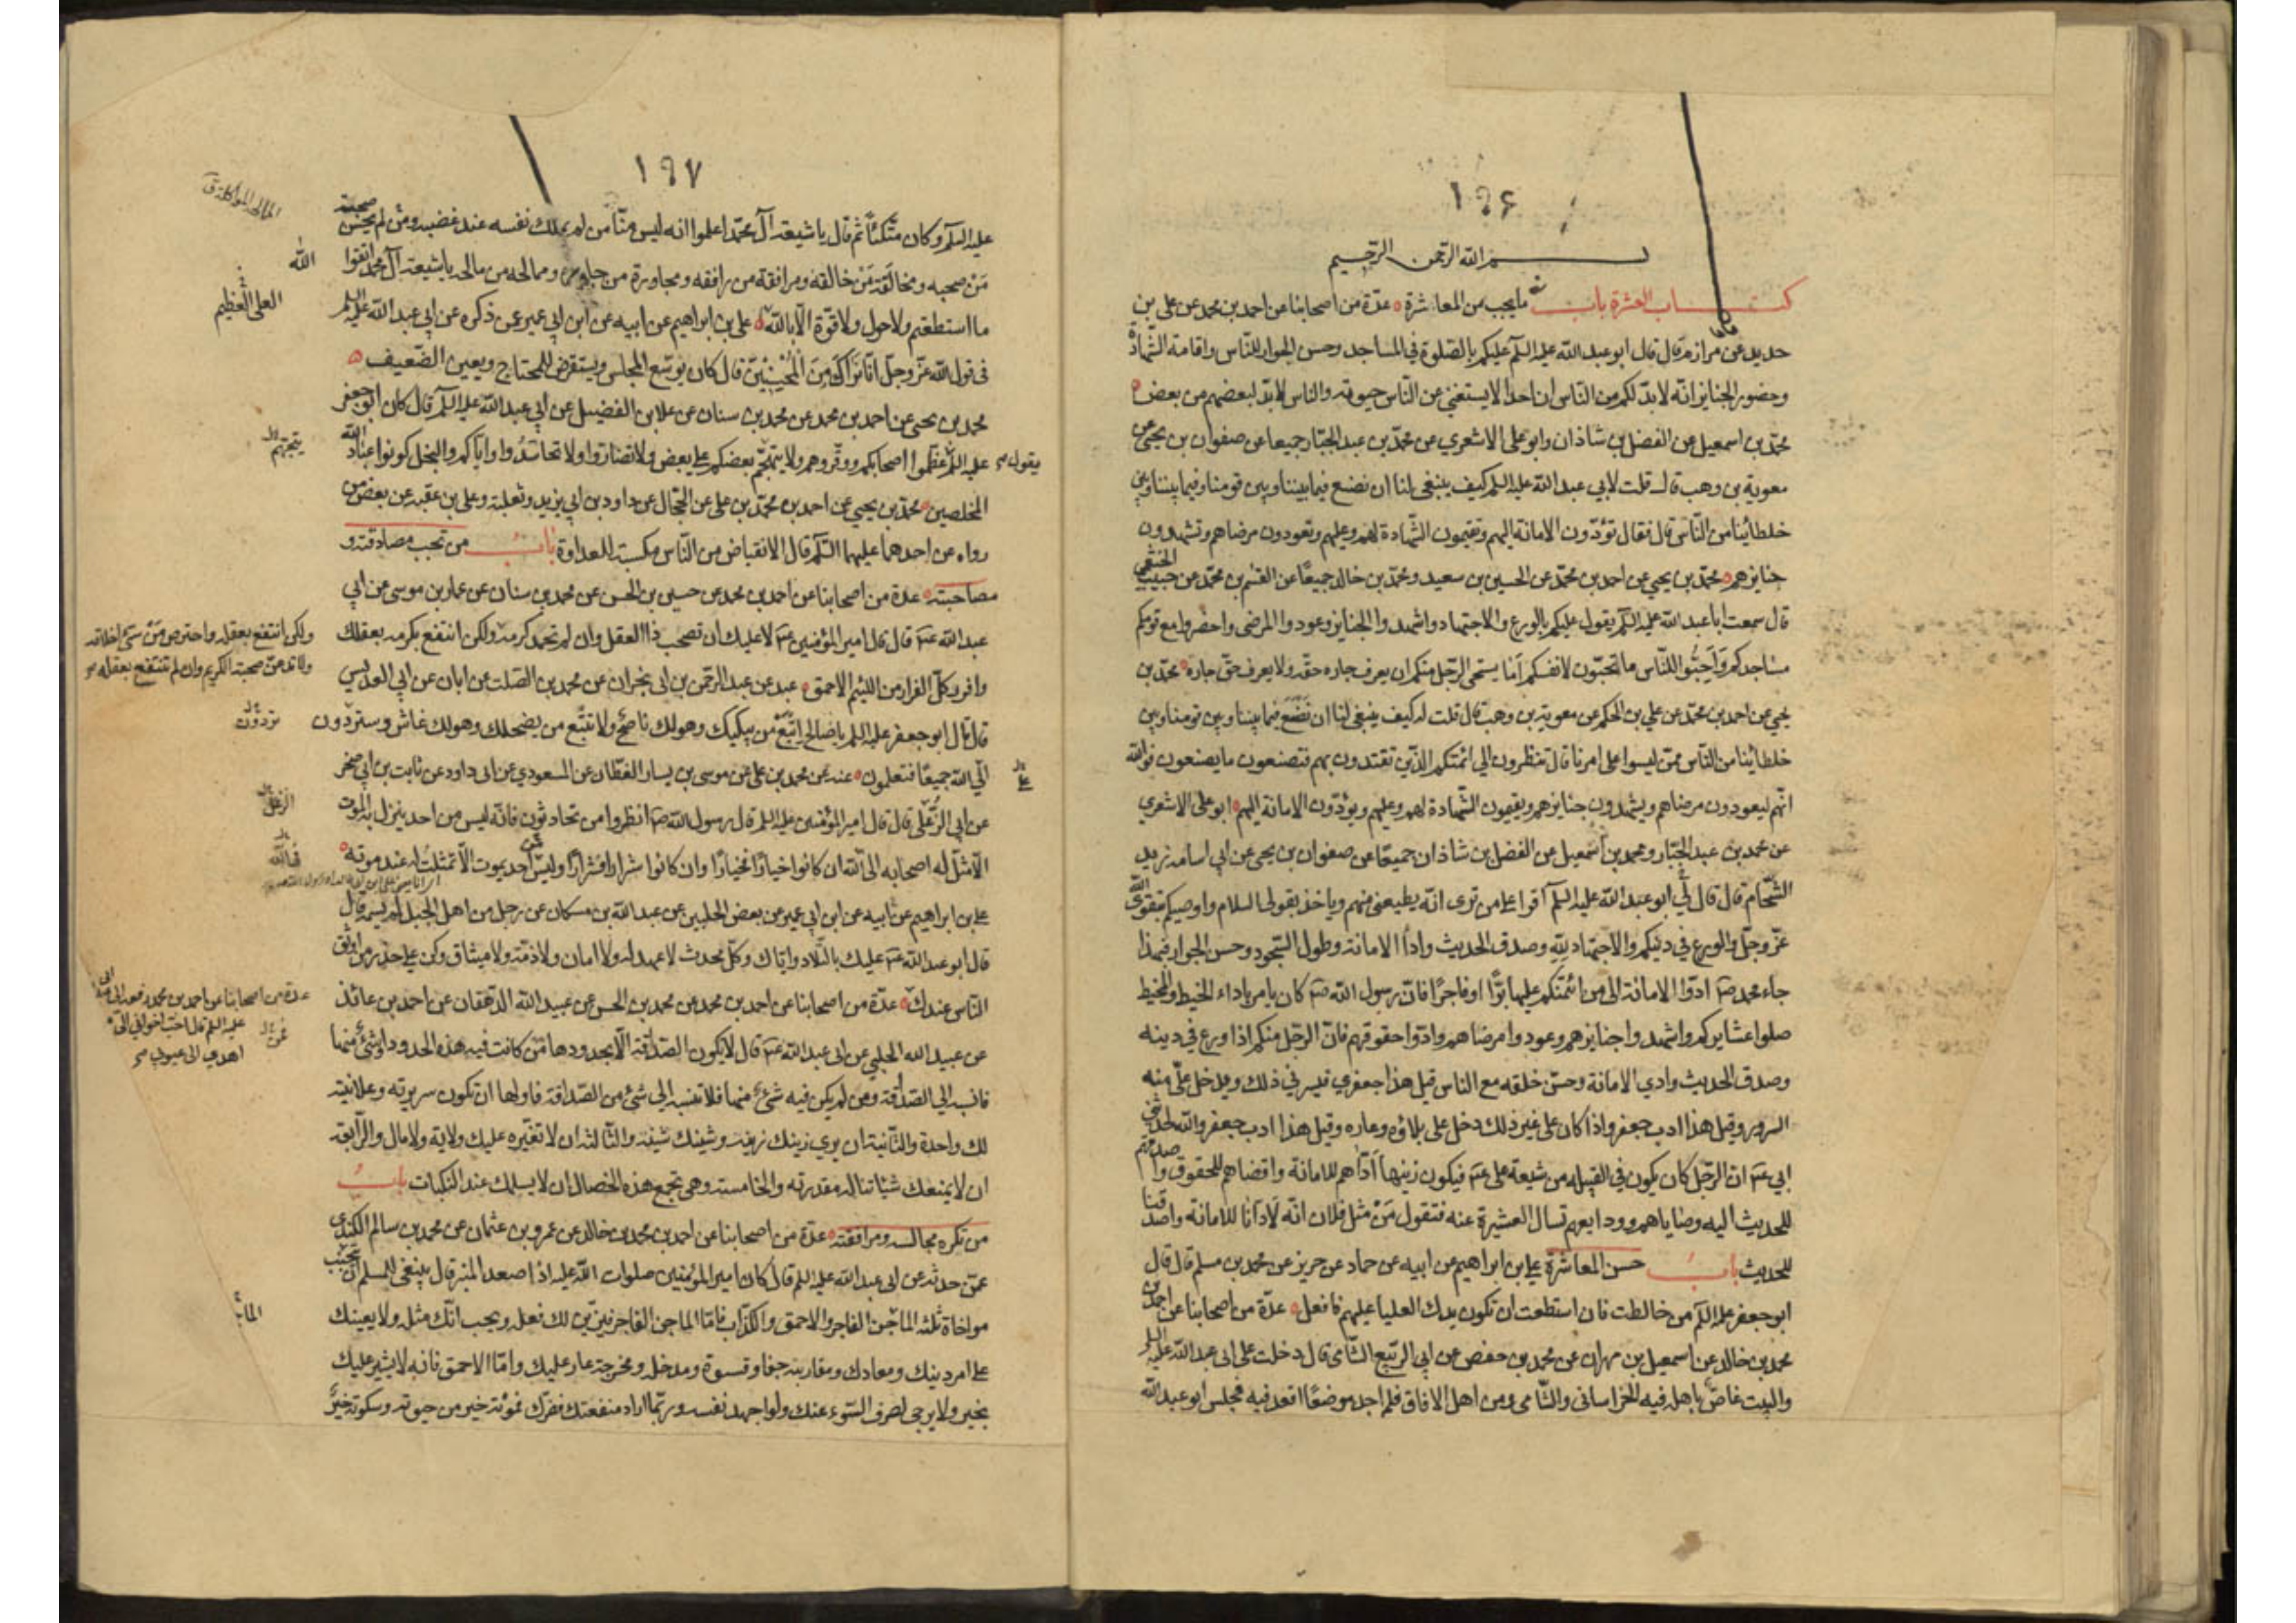 ١٩٦
بسم الله الرحمن الرحيم
كتاب العشرة باب ما يجب من المعاشرة عدّة من اصحابنا عن احمد بن محمد عن علي بن
حديد عن مرازم قال قال ابو عبد الله عليه السلم عليكم بالصّلوة في المساجد وحسن الجوار للنّاس واقامة الشّهادة
وحضور الجنايز انّه لابدّ لكم من النّاس ان احدا لا يستغني عن النّاس حيوته والناس لابدّ لبعضهم من بعض
محمّد بن اسمعيل عن الفضل بن شاذان وابو علي الاشعري عن محمّد بن عبد الجبّار جميعا عن صفوان بن يحيى عن
معوية بن وهب قال قلت لابي عبد الله عليه السلم كيف ينبغي لنا ان نصنع فيما بيننا وبين قومنا وفيما بيننا وبين
خلطائنا من النّاس قال فقال تؤدّون الامانة اليهم وتقيمون الشّهادة لهم وعليهم وتعودون مرضاهم وتشهدون
جنايزهم محمّد بن يحيي عن احمد بن محمّد عن الحسين بن سعيد ومحمّد بن خالد جميعًا عن القسم بن محمّد عن حبيب الخثعمي
قال سمعت ابا عبد الله عليه السلم يقول عليكم بالورع والاجتهاد واشهدوا الجنايز وعودوا المرضى واحضروا مع قومكم
مساجدكم وَاَحِبُّوا للنّاس ما تحبّون لانفسكم اَمَا يستحي الرّجل منكم ان يعرف جاره حقّه ولا يعرف حقّ جاره محمّد بن
يحيي عن احمد بن محمّد عن علي بن الحكم عن معوية بن وهب قال قلت له كيف ينبغي لنا ان نَصْنَع فيما بيننا وبين قومنا وبين
خلطائنا من النّاس ممّن ليسوا على امرنا قال تنظرون الي ائمتكم الذّين تقتدون بهم فتصنعون ما يصنعون فوالله
انّهم ليعودون مرضاهم ويشهدون جنايزهم ويقيمون الشّهادة لهم وعليهم ويؤدّون الامانة اليهم ابو علي الاشعري
عن محمد بن عبد الجبّار ومحمد بن اسمعيل عن الفضل بن شاذان جميعًا عن صفوان بن يحيى عن ابي اسامه زيد
الشّحّام قال قال لي ابو عبد الله عليه السلم اقرا على من ترى انّه يطيعني منهم وياخذ بقولي السلام واوصيكم بتقوى الله
عزّ وجلّ والورع في دينكم والاجتهاد لِلّهِ وصدق الحديث واداء الامانة وطول السّجود وحسن الجوار فبهذا
جاء محمد صه ادّوا الامانة الى من ائتمنكم عليها برًّا او فاجرًا فانّ رسول الله صه كان يامر باداء الخيط والمخيط
صلوا عشايركم واشهدوا جنايزهم وعودوا مرضاهم وادّوا حقوقهم فانّ الرّجل منكم اذا ورع في دينه
وصدق الحديث وادي الامانة وحسّن خلقه مع الناس قيل هذا جعفري فيسرني ذلك ويدخل عليّ منه
السرور وقيل هذا ادب جعفر واذا كان على غير ذلك دخل على بلاؤه وعاره وقيل هذا ادب جعفر والله لحدثني
ابي عه انّ الرّجل كان يكون في القبيله من شيعة على عه فيكون زينها اَدَّاهم للامانة واقضاهم للحقوق واصدقهم
للحديث اليه وصاياهم وودايعهم تسال العشيرة عنه فتقول مَنْ مثل فلان انّه لَاَدّانَا للامانة واصدقنا
للحديث باب حسن المعاشرة علي بن ابراهيم عن ابيه عن حماد عن حريز عن محمد بن مسلم قال قال
ابو جعفر عليه السلم من خالطت فان استطعت ان تكون يدك العليا عليهم فافعل عدّة من اصحابنا عن احمد بن
محمد بن خالد عن اسمعيل بن مهران عن محمد بن حفص عن ابي الرّبيع الشّامى قال دخلت على ابى عبد الله عليه السلم
والبيت غاصّ باهله فيه الخراسانى والشّامى ومن اهل الافاق فلم اجد موضعًا اقعد فيه فجلس ابو عبد الله
١٩٧
عليه السلم وكان متّكئاً ثم قال يا شيعة آل محمّد اعلموا انه ليس منّا من لم يملك نفسه عند غضبه ومن لم يحسن صحبة
مَنْ صحبه ومخالقة مَنْ خالقه ومرافقة من رافقه ومجاورة من جاوره وممالحة من مالحه يا شيعة آل محمد اتقوا الله
ما استطعتم ولا حول ولا قوّة الّا بالله علي بن ابراهيم عن ابيه عن ابن ابي عمير عمن ذكره عن ابي عبد الله عليه السلم
العلي العظيم
في قول الله عزّ وجلّ انّا نَراكَ مِنَ الْمُحْسِنِيْنَ قال كان يوسّع المجلس ويستقرض للمحتاج ويعين الضّعيف
محمد بن يحيى عن احمد بن محمد عن محمد بن سنان عن علا بن الفضيل عن ابي عبد الله عليه السلم قال كان ابو جعفر
عليه السلم يقول عظّموا اصحابكم ووقّروهم ولا يتهجّم بعضكم على بعض ولا تضارّوا ولا تحاسَدُوا واياكم والبخل كونوا عباد الله
يتجهّم
المخلصين محمّد بن يحيي عن احمد بن محمّد بن علي عن الحجّال عن داود بن ابي يزيد وثعلبة وعلي بن عقبه عن بعض من
رواه عن احدهما عليهما السّلم قال الانقباض من النّاس مكسبة للعداوة باب من تحب مصادقته و
مصاحبته عدة من اصحابنا عن احمد بن محمد عن حسين بن الحسن عن محمد بن سنان عن عمار بن موسى عن ابي
عبد الله عه قال قال امير المؤمنين عه لا عليك ان تصحب ذا العقل وان لم تحمد كرمه ولكن انتفع بكرمه بعقلك
ولكن انتفع بعقله واحترس مِنْ سَيّئ اخلاقه
ولا تدعنّ صحبة الكريم وان لم تنتفع بعقله
وافرر كلّ الفرار من اللئيم الاحمق عنه عن عبد الرّحمن بن ابى نجران عن محمد بن الصّلت عن ابان عن ابي العديس
قال قال ابو جعفر عليه السلم يا صالح اتّبع مَنْ يبكيك وهو لك ناصح ولا تتّبع من يضحكك وهو لك غاش وستردّون
تردون
الي الله جميعًا فتعلمون عنه عن محمد بن علي عن موسى بن يسار القطّان عن المسعودي عن ابى داود عن ثابت بن ابي صخر
عن ابي الزّعلى قال قال امير المؤمنين عليه السلم قال رسول الله صه انظروا من تحادثون فانّه ليس من احد ينزل به الموت
الّا مثّل له اصحابه الى الله ان كانوا خيارًا فخيارًا وان كانوا شرارا فشرارًا وليس احد يموت الّا تمثلتُ له عند موته
علي بن ابراهيم عن ابيه عن ابن ابي عمير عن بعض الحلبيين عن عبد الله بن مسكان عن رجل من اهل الجبل لم يسمه قال
قال ابو عبد الله عه عليك بالتّلاد وايّاك وكلّ محدث لا عهد له ولا امان ولا ذمّة ولا ميثاق وكن على حذر من اوثق
النّاس عندك عدّة من اصحابنا عن احمد بن محمد عن محمد بن الحسن عن عبيد الله الدّهقان عن احمد بن عائذ
عدة من اصحابنا عن احمد بن محمد رفعه الى ابى عبد الله
عليه السلم قال احبّ اخواني اليّ من
اهدي الى عيوبي
عن عبيد الله الحلبي عن ابى عبد الله عه قال لا يكون الصّداقة الّا بحدودها فمن كانت فيه هذه الحدود او شيء منها
فانسبه الي الصّداقة ومن لم يكن فيه شيء منها فلا تنسبه الي شيء من الصّداقة فاولها ان تكون سريرته وعلانيته
لك واحدة والثّانية ان يري زينك زينه وشينك شينه والثّالثه ان لا تغيّره عليك ولاية ولا مال والرّابعة
ان لا يمنعك شيئا تناله مقدرته والخامسة وهي تجمع هذه الخصال ان لا يسلمك عند النّكبات باب
من تكره مجالسته ومرافقته عدة من اصحابنا عن احمد بن محمد بن خالد عن عمرو بن عثمان عن محمد بن سالم الكندى
عمّن حدثه عن ابى عبد الله عليه السلم قال كان امير المؤمنين صلوات الله عليه اذا صعد المنبر قال ينبغى للمسلم ان يجتنب
مواخاة ثلثة الماجن الفاجر والاحمق والكذّاب فامّا الماجن الفاجر فيزيّن لك فعله ويحب انّك مثله ولا يعينك
على امر دينك ومعادك ومقاربته جفا وقسوة ومدخله ومخرجه عار عليك وامّا الاحمق فانه لا يشير عليك
بخير ولا يرجى لصرف السّوء عنك ولو اجهد نفسه وربّما اراد منفعتك فضرّك فموته خير من حيوته وسكوته خيرٌ